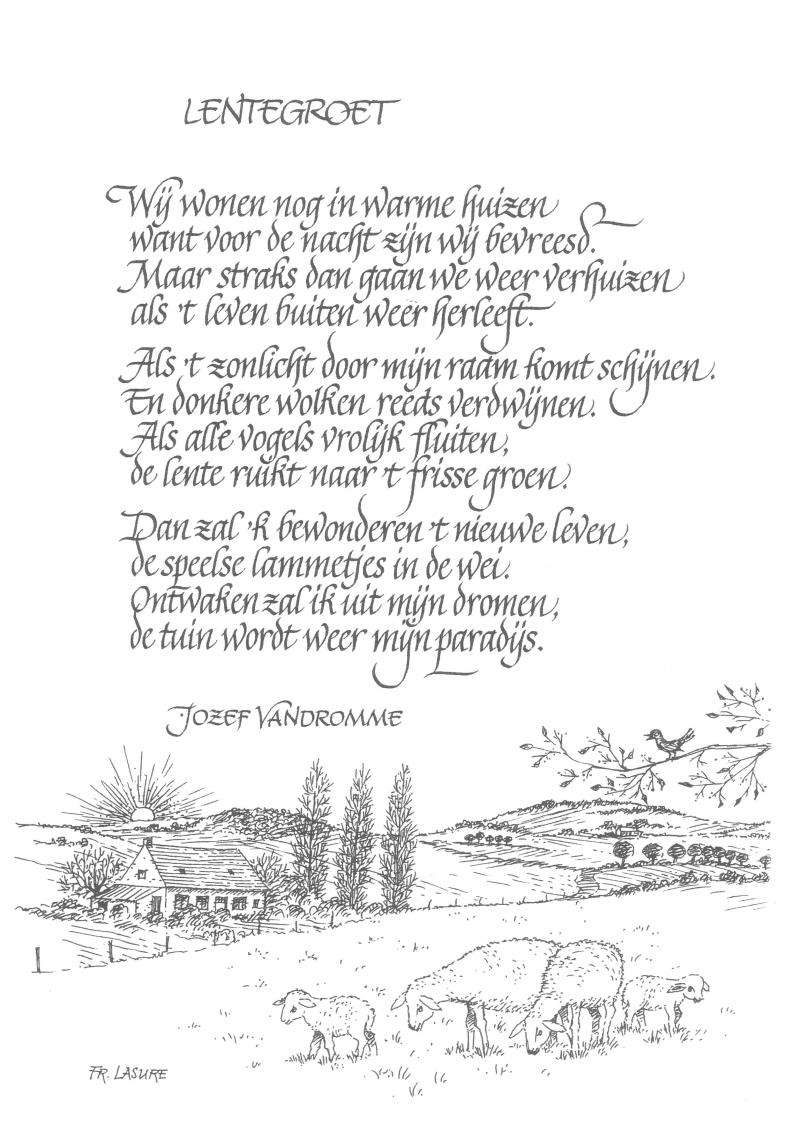 LENTEGROET
Wij wonen nog in warme huizen
want voor de nacht zijn wij bevreesd.
Maar straks dan gaan we weer verhuizen
als 't leven buiten weer herleeft.
Als 't zonlicht door mijn raam komt schijnen.
En donkere wolken reeds verdwijnen.
Als alle vogels vrolijk fluiten,
de lente ruikt naar 't frisse groen.
Dan zal 'k bewonderen 't nieuwe leven,
de speelse lammetjes in de wei.
Ontwaken zal ik uit mijn dromen,
de tuin wordt weer mijn paradijs.
JOZEF VANDROMME
FR. LASURE